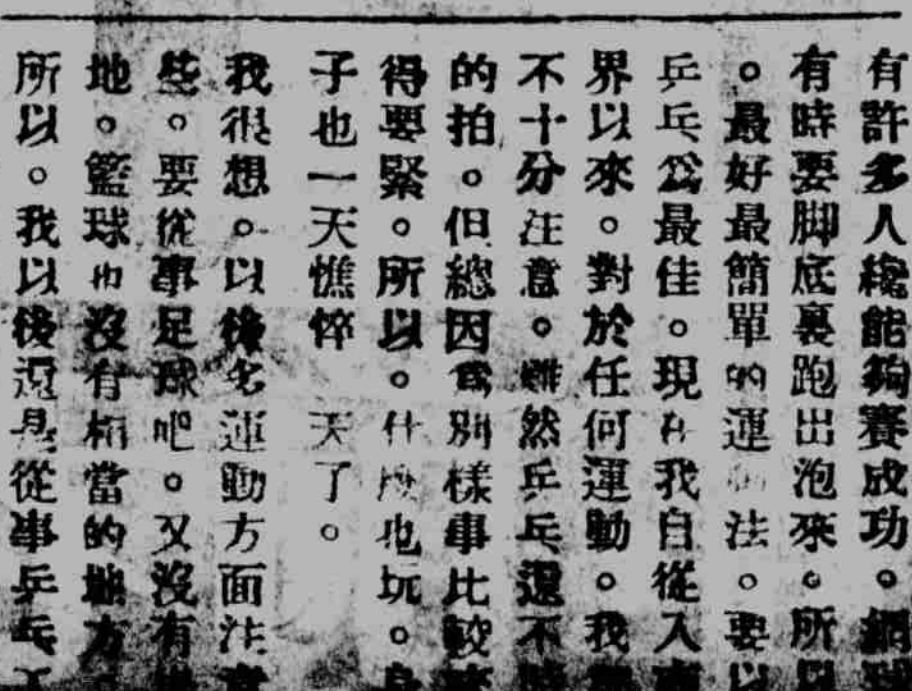 有許多人纔能夠賽成功。網球
有時要脚底裏跑出泡來。所以
。最好最簡單的運動法。要以
乒乓爲最佳。現在我自從入商
界以來。對於任何運動。我
不十分注意。雖然乒乓還不時
的拍。但總因爲別樣事比較
得要緊。所以。什麼也玩。身
子也一天憔悴 天了。
我很想。以後多運動方面注意
些。要從事足球吧。又沒有
地。籃球也沒有相當的地方
所以。我以後還是從事乒乓